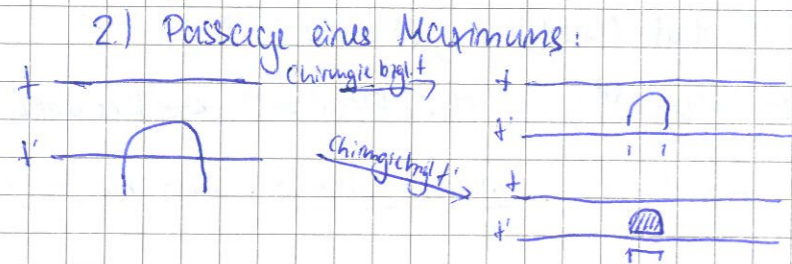 2.) Passage eines Maximums:
t Chirurgie bzgl. t t
t'
t' Chirurgie bzgl. t'
t
t'